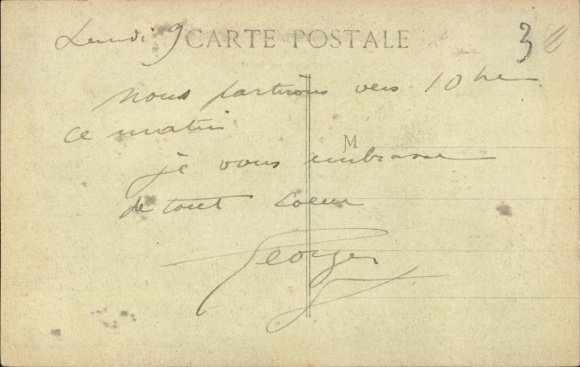 Lundi 9 CARTE POSTALE 3
nous partirons vers 10 he
ce matin
M
je vous embrasse
de tout coeur
Georges